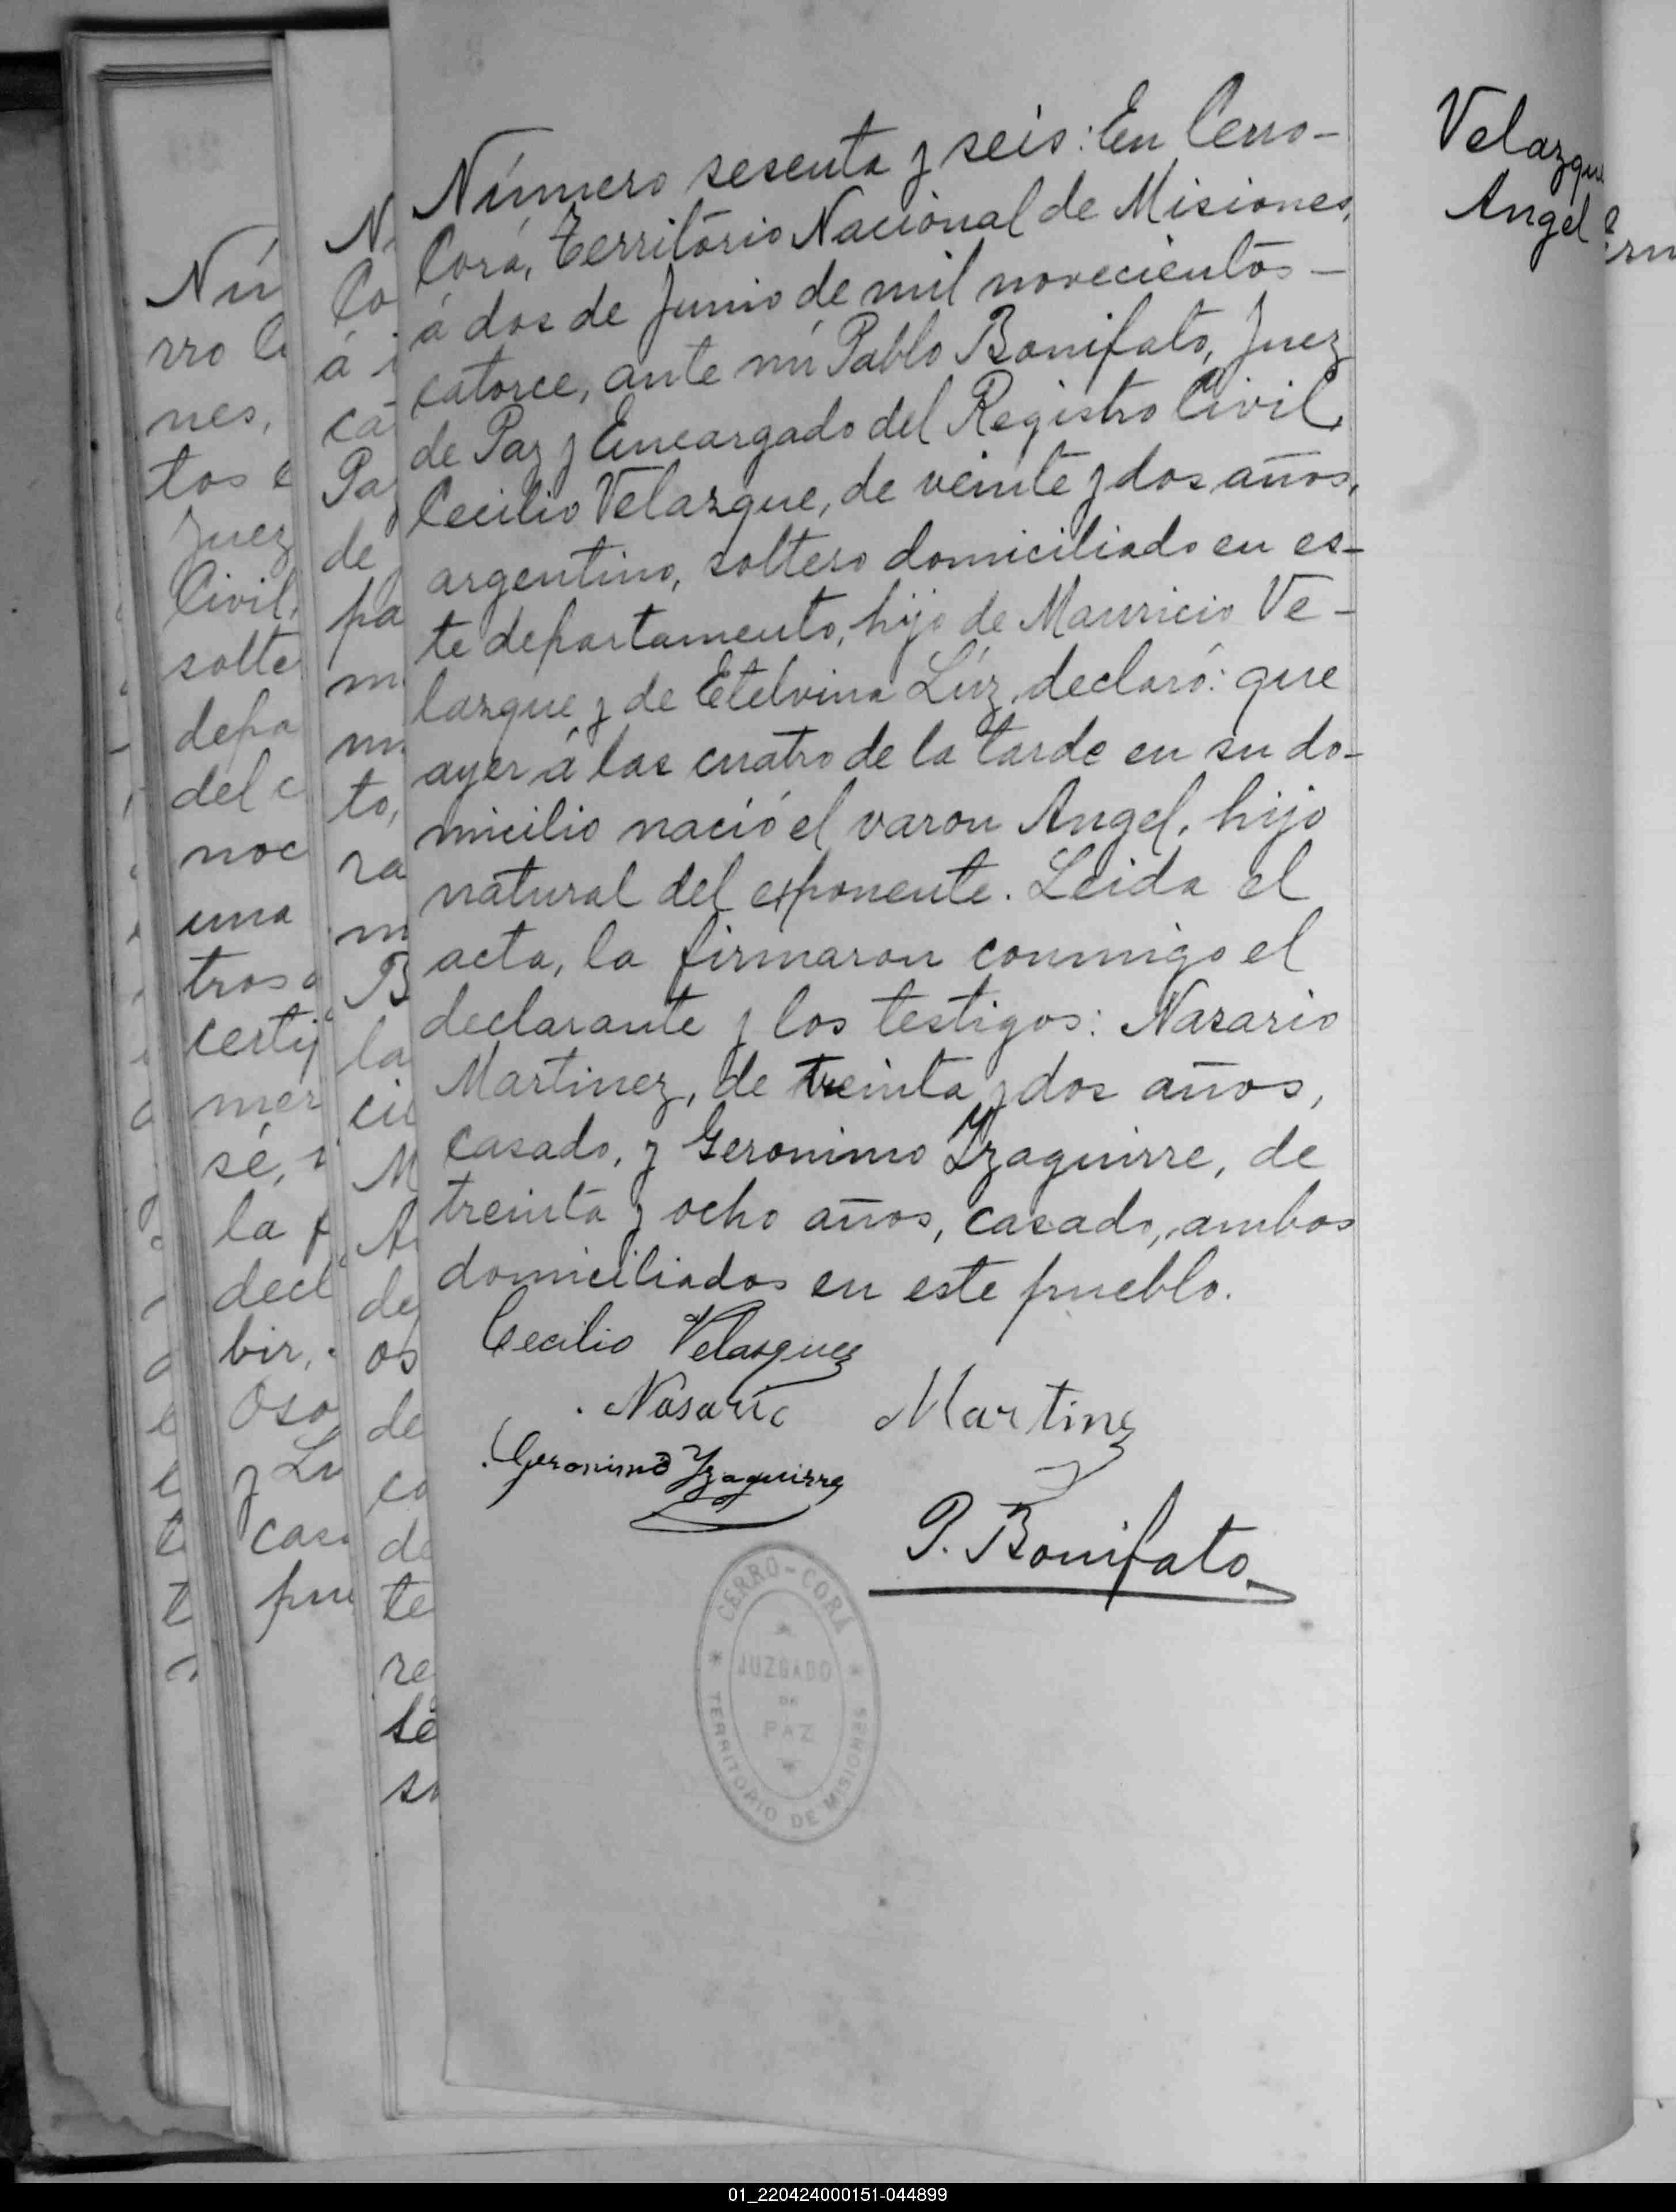 Número sesenta y seis: En Cerro-
Corá, Territorio Nacional de Misiones,
á dos de Junio de mil novecientos -
catorce, ante mí Pablo Bonifato, Juez
de Paz y Encargado del Registro Civil,
Cecilio Velazque, de veinte y dos años,
argentino, soltero domiciliado en es-
te departamento, hijo de Mauricio Ve-
lazque y de Etelvina Lúz, declaró: que
ayer á las cuatro de la tarde en su do-
micilio nació el varon Angel, hijo
natural del exponente. Leida el
acta, la firmaron conmigo el
declarante y los testigos: Nazario
Martinez, de treinta y dos años,
casado, y Geronimo Yzaguirre, de
treinta y ocho años, casado, ambos
domiciliados en este pueblo.
Cecilio Velasquez
Nasario Martinez
Geronimo Yzaguirre
P. Bonifato
CERRO-CORÁ
JUZGADO
DE
PAZ
TERRITORIO DE MISIONES
Velazque
Angel
Nú
rro C
nes,
tos
Juez
Civil,
solte
depa
del c
noc
una
tros
certif
mer
sé,
la f
decl
bir,
Oso
y Lu
cas
pue
N
Co
á
ca
Pa
de
pa
m
to,
ra
m
B
la
cil
M
A
de
os
de
co
de
te
re
te
so
01_220424000151-044899